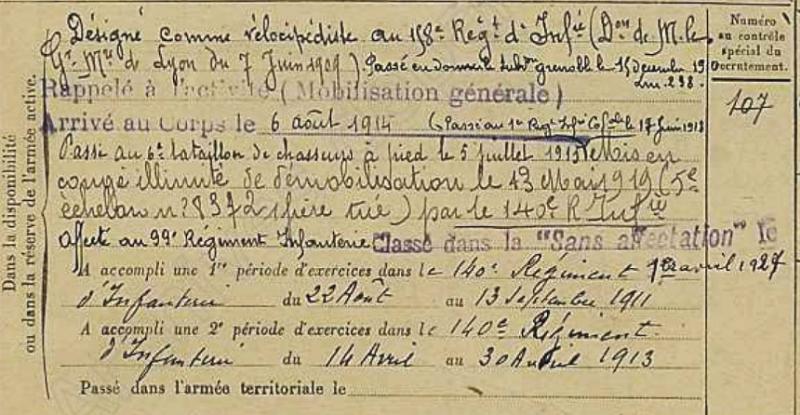 Désigné comme vélocipédiste au 158e Régt d'Infie (Don de M. le
Gr Mre de Lyon du 7 Juin 1909). Passé en domicile Subdon Grenoble le 15 décembre 19
Lm. 238.
Rappelé à l'activité (Mobilisation générale)
Arrivé au Corps le 6 août 1914 (Passé au 1er Regt Infie Colale le 17 Juin 1918
Passé au 6e bataillon de chasseurs à pied le 5 juillet 1915 Mis en
congé illimité de démobilisation le 13 Mai 1919 (5e
échelon n° 8372 frère tué) par le 140e R. Infie
Affecté au 99e Régiment Infanterie Classé dans la "Sans affectation" le
1er avril 1927
A accompli une 1re période d'exercices dans le 140e Régiment
d'Infanterie du 22 Août au 13 Septembre 1911
A accompli une 2e période d'exercices dans le 140e Régiment
d'Infanterie du 14 Avril au 30 Avril 1913
Passé dans l'armée territoriale le
Dans la disponibilité
ou dans la réserve de l'armée active.
Numéro
au contrôle
spécial du
recrutement.
107